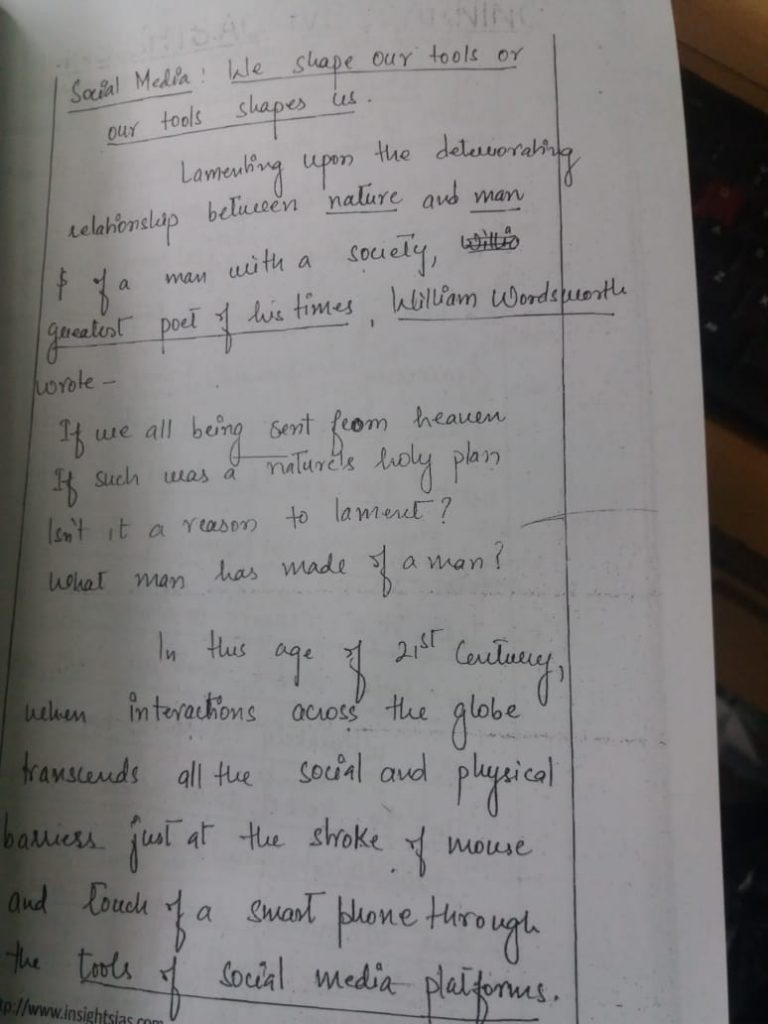 Social Media: We shape our tools or
our tools shapes us.
Lamenting upon the deteriorating
relationship between nature and man
& of a man with a society,
greatest poet of his times, William Wordsworth
wrote -
If we all being sent from heaven
If such was a nature's holy plan
Isn't it a reason to lament?
What man has made of a man?
In this age of 21st Century,
when interactions across the globe
transcends all the social and physical
barriers just at the stroke of mouse
and touch of a smart phone through
the tools of social media platforms.
http://www.insightsias.com